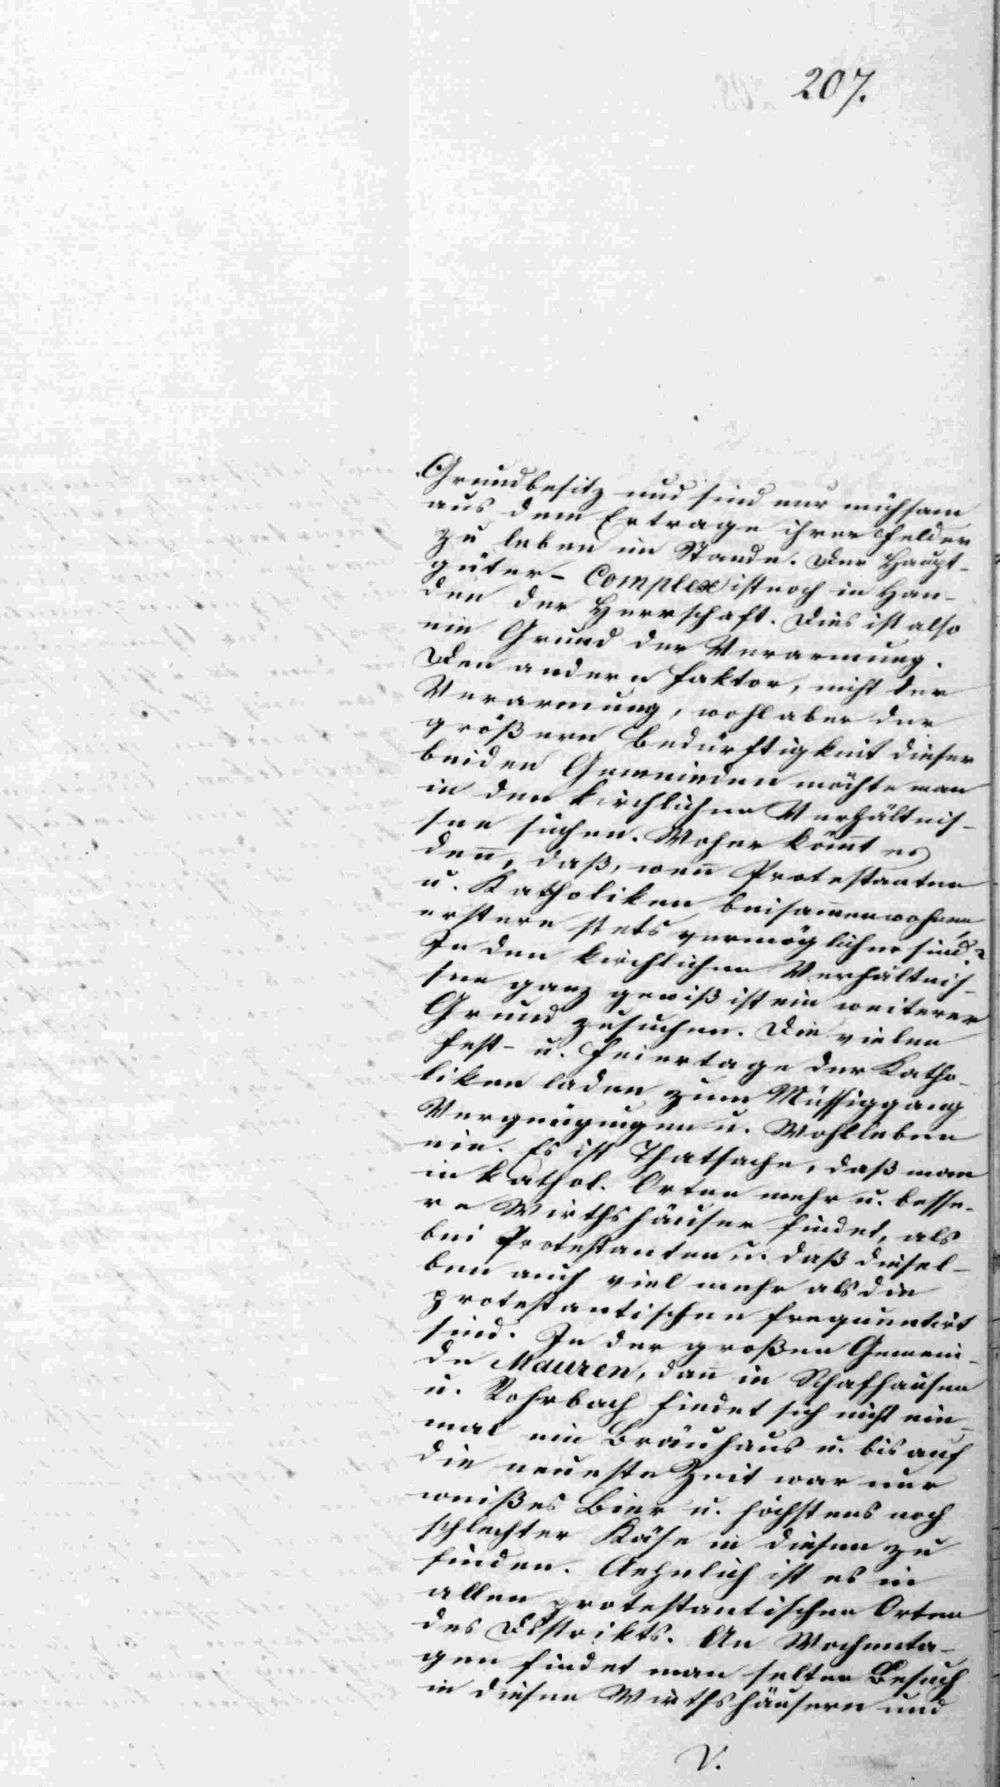 207.
Grundbesitz und sind nur mühsam
aus dem Ertrage ihrer Felder
zu leben im Stande. Der Haupt-
güter-Complex ist noch in Hän-
den der Herrschaft. Dies ist also
ein Grund der Verarmung.
Den andern Faktor, nicht der
Verarmung, wohl aber der
größern Bedürftigkeit dieser
beiden Gemeinden möchte man
in den kirchlichen Verhältnis-
sen suchen. Woher kom̅t es
den̅, daß, wen̅ Protestanten
u. Katholiken beisam̅enwohnen,
erstere stets vermöglicher sind?
In den kirchlichen Verhältnis-
sen ganz gewiß ist ein weiterer
Grund zu suchen. Die vielen
Fest- u. Feiertage der Katho-
liken laden zum Müssiggang
Vergnügungen u. Wohlleben
ein. Es ist Thatsache, daß man
in kathol. Orten mehr u. besse-
re Wirthshäuser findet, als
bei Protestanten u. daß diesel-
ben auch viel mehr als die
protestantischen frequentirt
sind. In der großen Gemein-
de Mauren, dan̅ in Schafhausen
u. Rohrbach findet sich nicht ein-
mal ein Bräuhaus u. bis auf
die neueste Zeit war nur
weißes Bier u. höchstens noch
schlechter Käse in diesen zu
finden. Aehnlich ist es in
allen protestantischen Orten
des Distrikts. An Wochenta-
gen findet man selten Besuch
in diesen Wirthshäusern und
V.